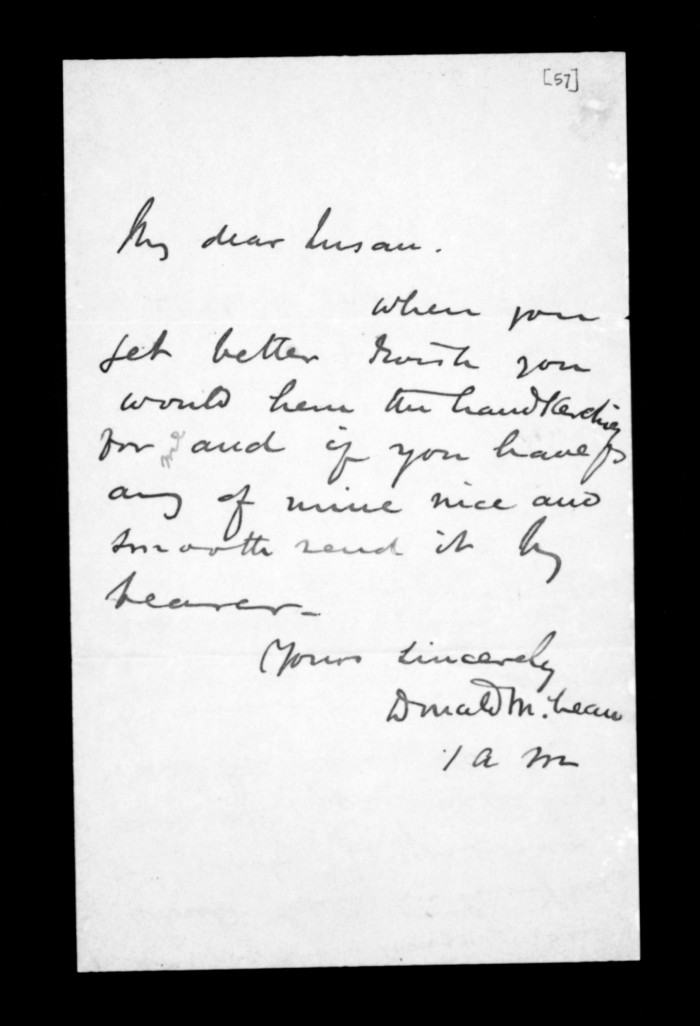 [57]
My dear Susan.
When you
get better I wish you
would hem the handkerchief
for me and if you have
any of mine nice and
smooth send it by
bearer -
Yours sincerely
Donald McLean
1 a m